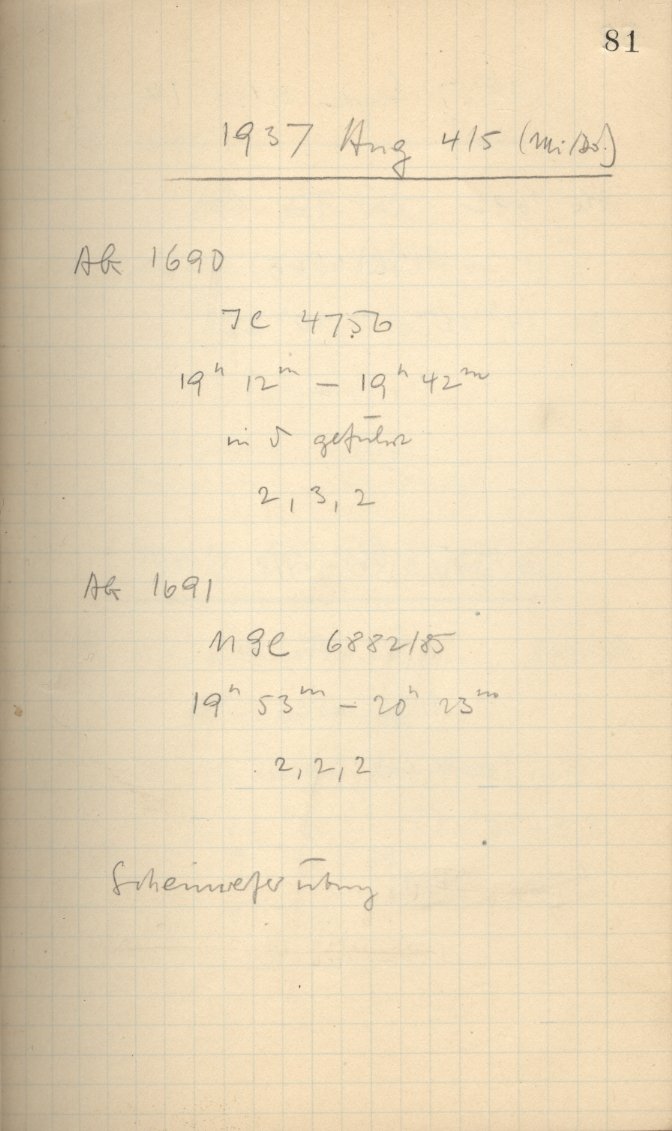 81
1937 Aug 4/5 (Mi/Do.)
AG 1690
IC 4756
19h 12m – 19h 42m
in δ geführt
2, 3, 2
AG 1691
NGC 6882/85
19h 53m – 20h 23m
2, 2, 2
Scheinwerferübung